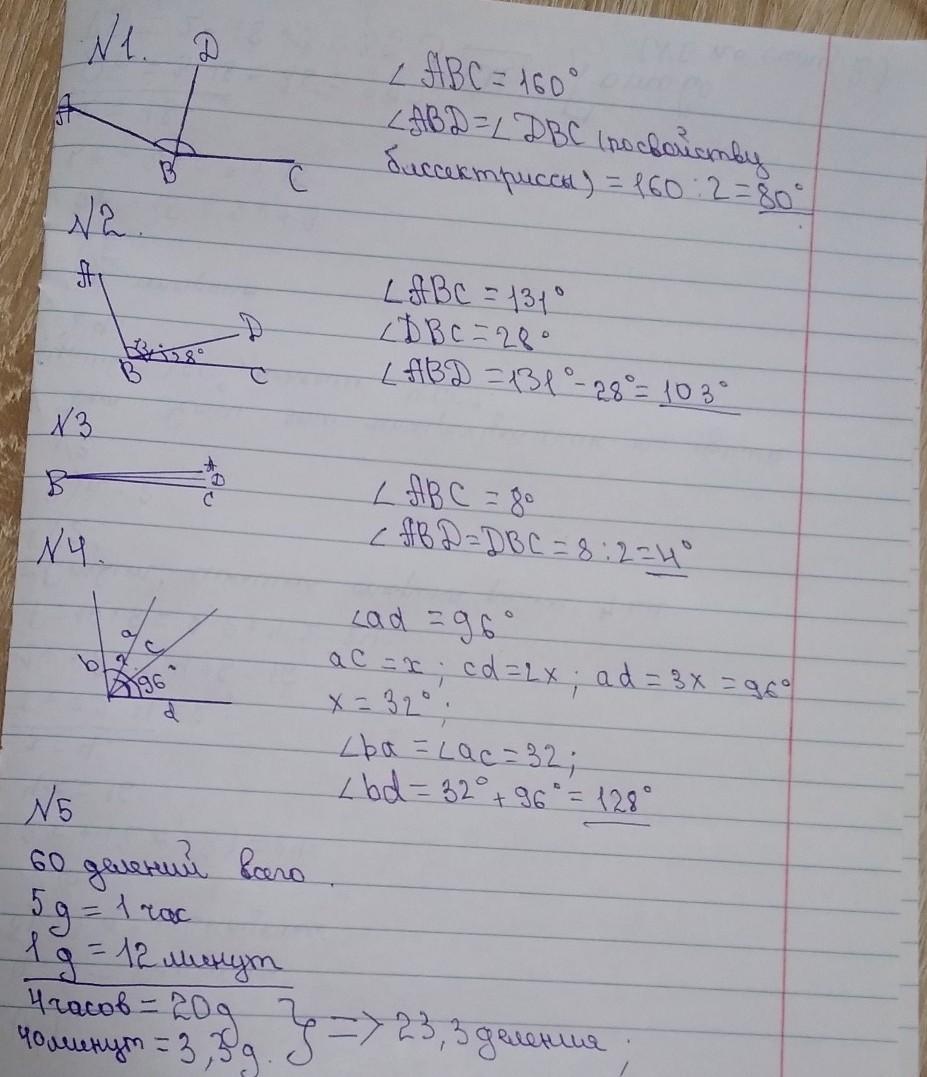 №1.
D
A
B
C
∠ABC = 160°
∠ABD = ∠DBC (по свойству
биссектриссы) = 160 : 2 = 80°
№2.
A
D
131°
28°
B
C
∠ABC = 131°
∠DBC = 28°
∠ABD = 131° - 28° = 103°
№3
B
A
D
C
∠ABC = 8°
∠ABD = DBC = 8 : 2 = 4°
№4.
a
c
b
96°
d
∠ad = 96°
ac = x; cd = 2x; ad = 3x = 96°
x = 32°;
∠ba = ∠ac = 32;
∠bd = 32° + 96° = 128°
№5
60 делений всего.
5 д = 1 час
1 д = 12 минут
4 часов = 20 д
40 минут = 3,3 д. } => 23,3 деления;